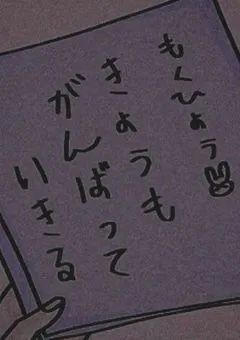 もくひょう
きょうも
がんばって
いきる